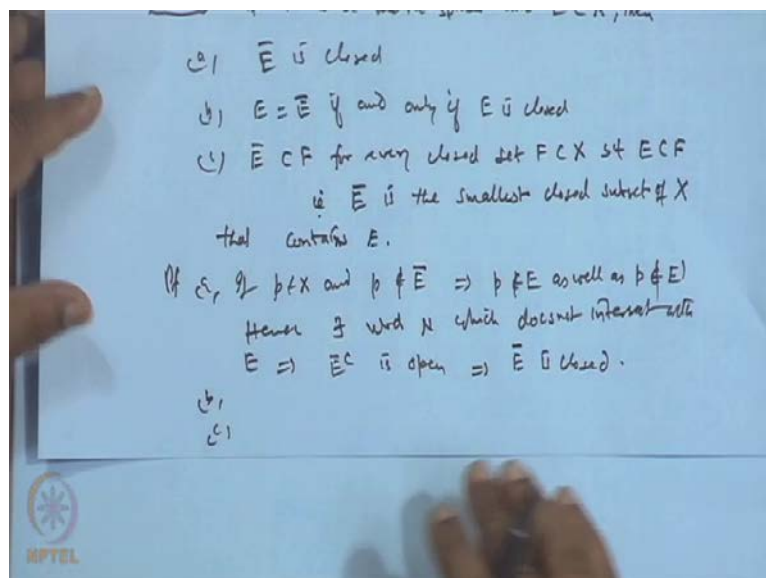 (a) E̅ is closed
(b) E = E̅ if and only if E is closed
(c) E̅ ⊂ F for every closed set F ⊂ X st E ⊂ F
ie E̅ is the smallest closed subset of X
that contains E.
Pf (a) If p ∈ X and p ∉ E̅ ⇒ p ∉ E as well as p ∉ E'
Hence ∃ nbd N which doesnot intersect with
E ⇒ E̅ᶜ is open ⇒ E̅ is closed.
(b)
(c)
NPTEL